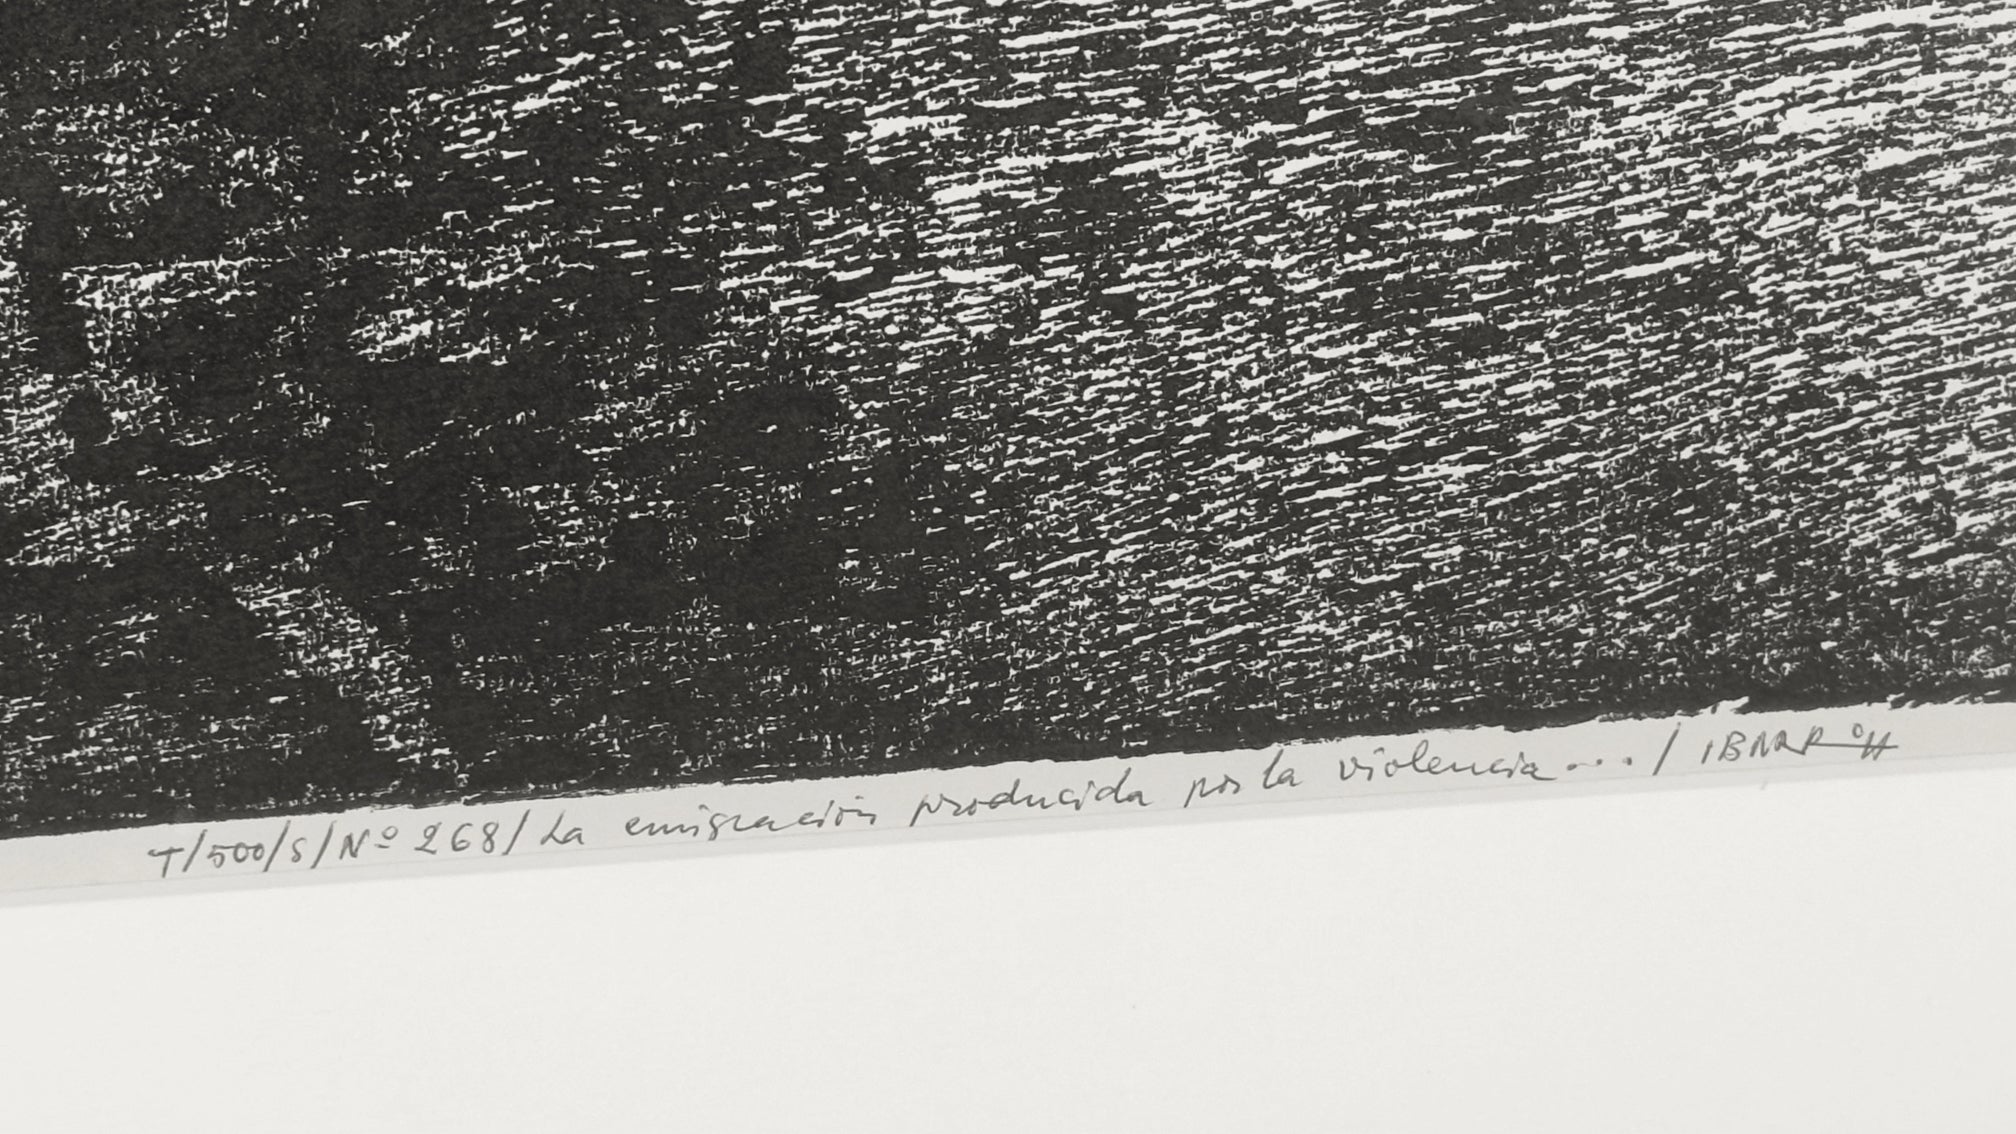 T/500/S/Nº 268/ La emigración producida por la violencia.../ IBARROLA